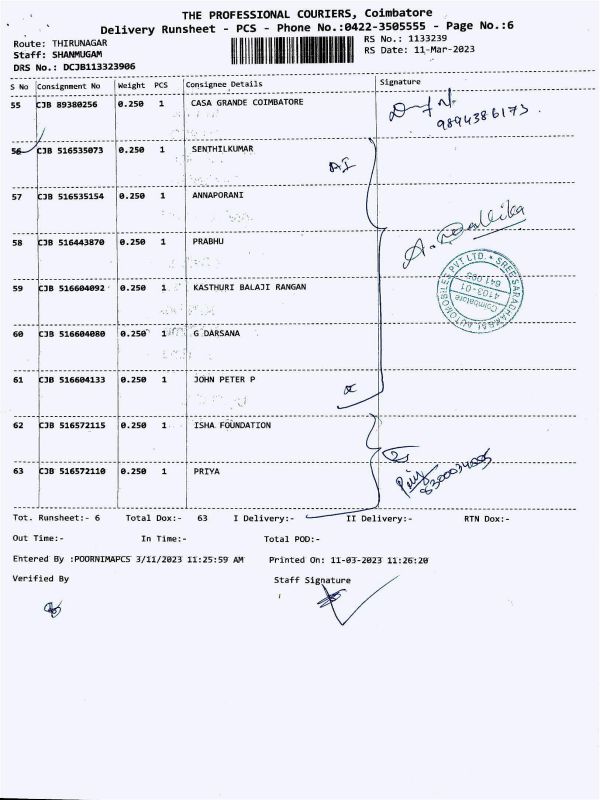 THE PROFESSIONAL COURIERS, Coimbatore
Delivery Runsheet - PCS - Phone No.:0422-3505555 - Page No.:6
Route: THIRUNAGAR RS No.: 1133239
Staff: SHANMUGAM RS Date: 11-Mar-2023
DRS No.: DCJB113323906
S No Consignment No Weight PCS Consignee Details Signature
55 CJB 89380256 0.250 1 CASA GRANDE COIMBATORE
9894386173
56 CJB 516535073 0.250 1 SENTHILKUMAR
57 CJB 516535154 0.250 1 ANNAPORANI
58 CJB 516443870 0.250 1 PRABHU
59 CJB 516604092 0.250 1 KASTHURI BALAJI RANGAN
60 CJB 516604080 0.250 1 G DARSANA
61 CJB 516604133 0.250 1 JOHN PETER P
62 CJB 516572115 0.250 1 ISHA FOUNDATION
63 CJB 516572110 0.250 1 PRIYA
Tot. Runsheet:- 6 Total Dox:- 63 I Delivery:- II Delivery:- RTN Dox:-
Out Time:- In Time:- Total POD:-
Entered By :POORNIMAPCS 3/11/2023 11:25:59 AM Printed On: 11-03-2023 11:26:20
Verified By Staff Signature